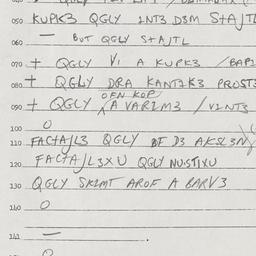 050 KUPK3 QGLY INT3 D3M StAJTL
— BUT QGLY StAJTL
060
070 + QGLY VI A KUPK3 /BAP1
080 + QGLY DRA KANT1K3 PROST3
OFN KOP
090 + QGLY A VAR1M3 /VINT3
100 O
110 FACtAJL3 QGLY OF D3 AKSL3N
120 FACTAJL3XU QGLY NUSTIXU
130 QGLY SKIMT AROF A BARV3
140 O
141 — .